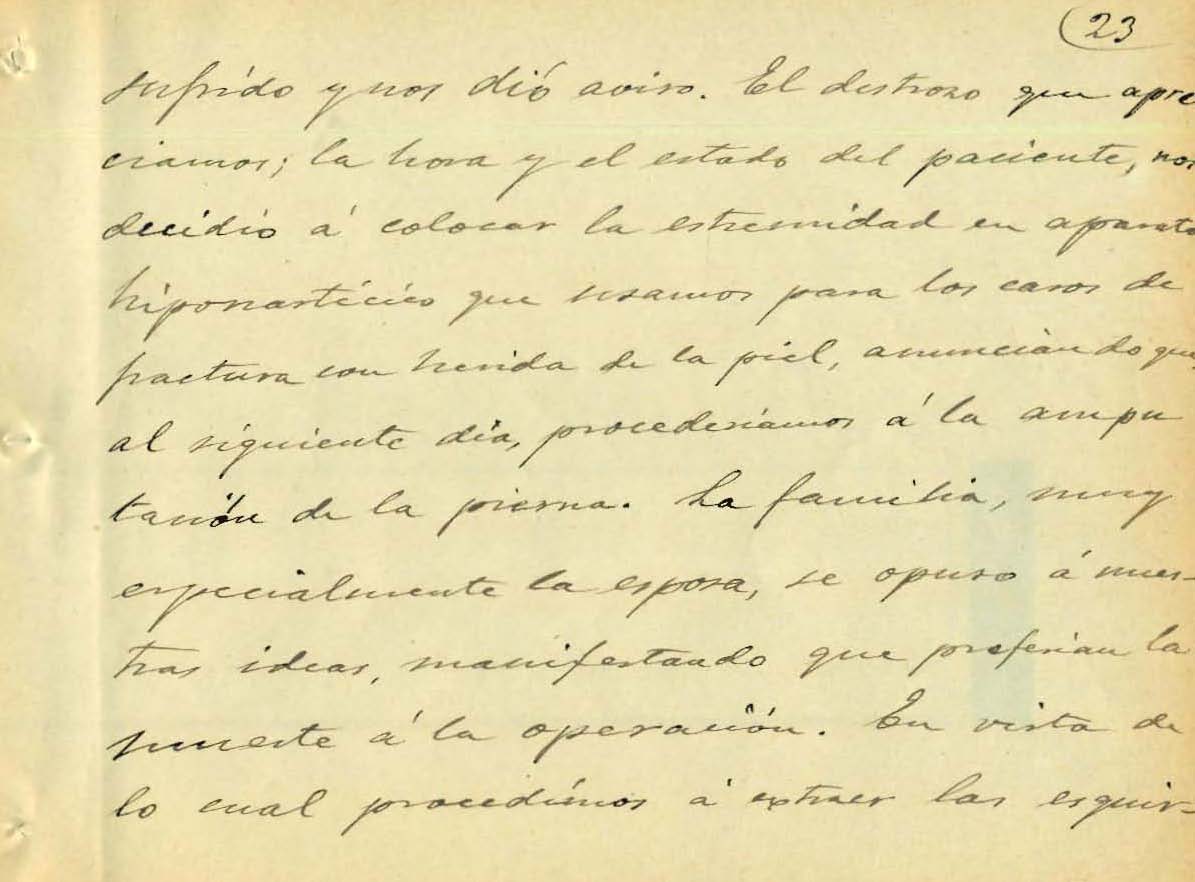 23
sufrido y nos dió aviso. El destrozo que apre
ciamos; la hora y el estado del paciente, nos
decidió á colocar la estremidad en aparato
hiponartécico que usamos para los casos de
fractura con herida de la piel, anunciando que,
al siguiente dia, procederiamos á la ampu
tación de la pierna. La familia, muy
especialmente la esposa, se opuso á nues-
tras ideas, manifestando que preferian la
muerte á la operación. En vista de
lo cual procedimos á extraer las esquir-